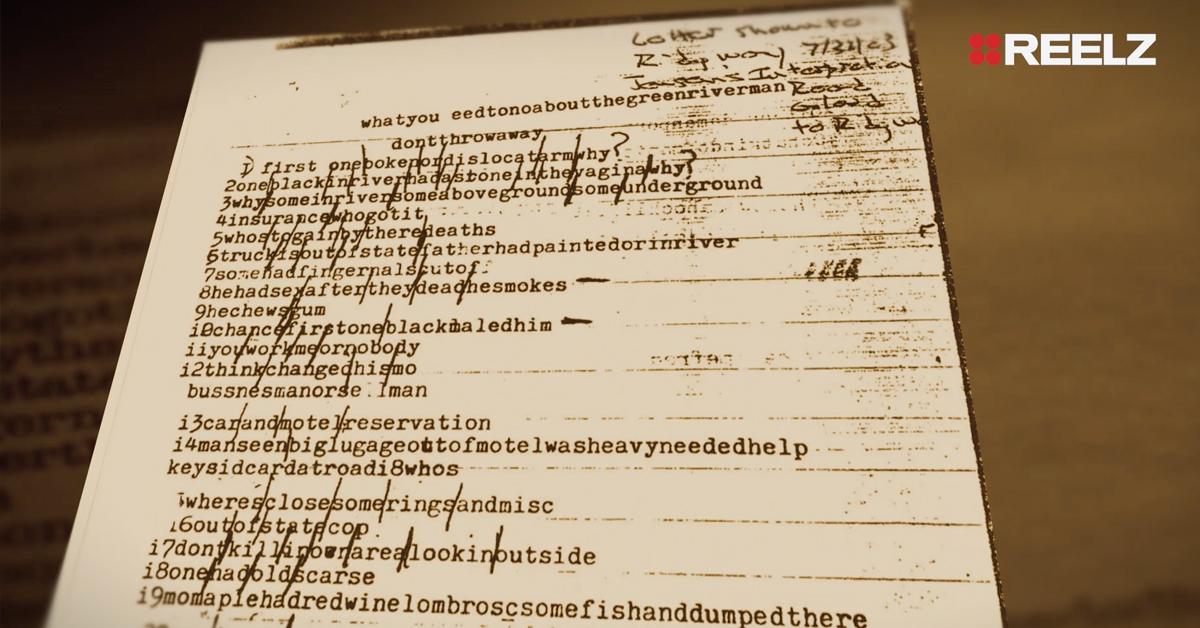 REELZ
Letter shown to
Ridgway 7/31/03
Interpretation
Read
to Ridgway
whatyou eedtonoaboutthegreenriverman
dontthrowaway
1) first onebokepordislocatarmwhy?
2oneblackinriverhadastoneinthevaginawhy?
3whysomeinriversomeabovegroundsomeunderground
4insurancewhogotit
5whostogainbytheredeaths
6truckisoutofstatefatherhadpaintedorinriver
7somehadfingernalscutof
8hehadsexaftertheydeadhesmokes
9hechewsgum
i0chancefirstoneblackmaledhim
iiyouworkmeornobody
i2thinkchangedhismo
bussnesmanorse.lman
i3carandmotelreservation
i4manseenbiglugageoutofmotelwasheavyneededhelp
keysidcardatroadi8whos
wheresclosesomeringsandmisc
i6outofstatecop
i7dontkillinownarealookinoutside
i8onehadoldscarse
i9momaplehadredwinelombroscsomefishanddumpedthere